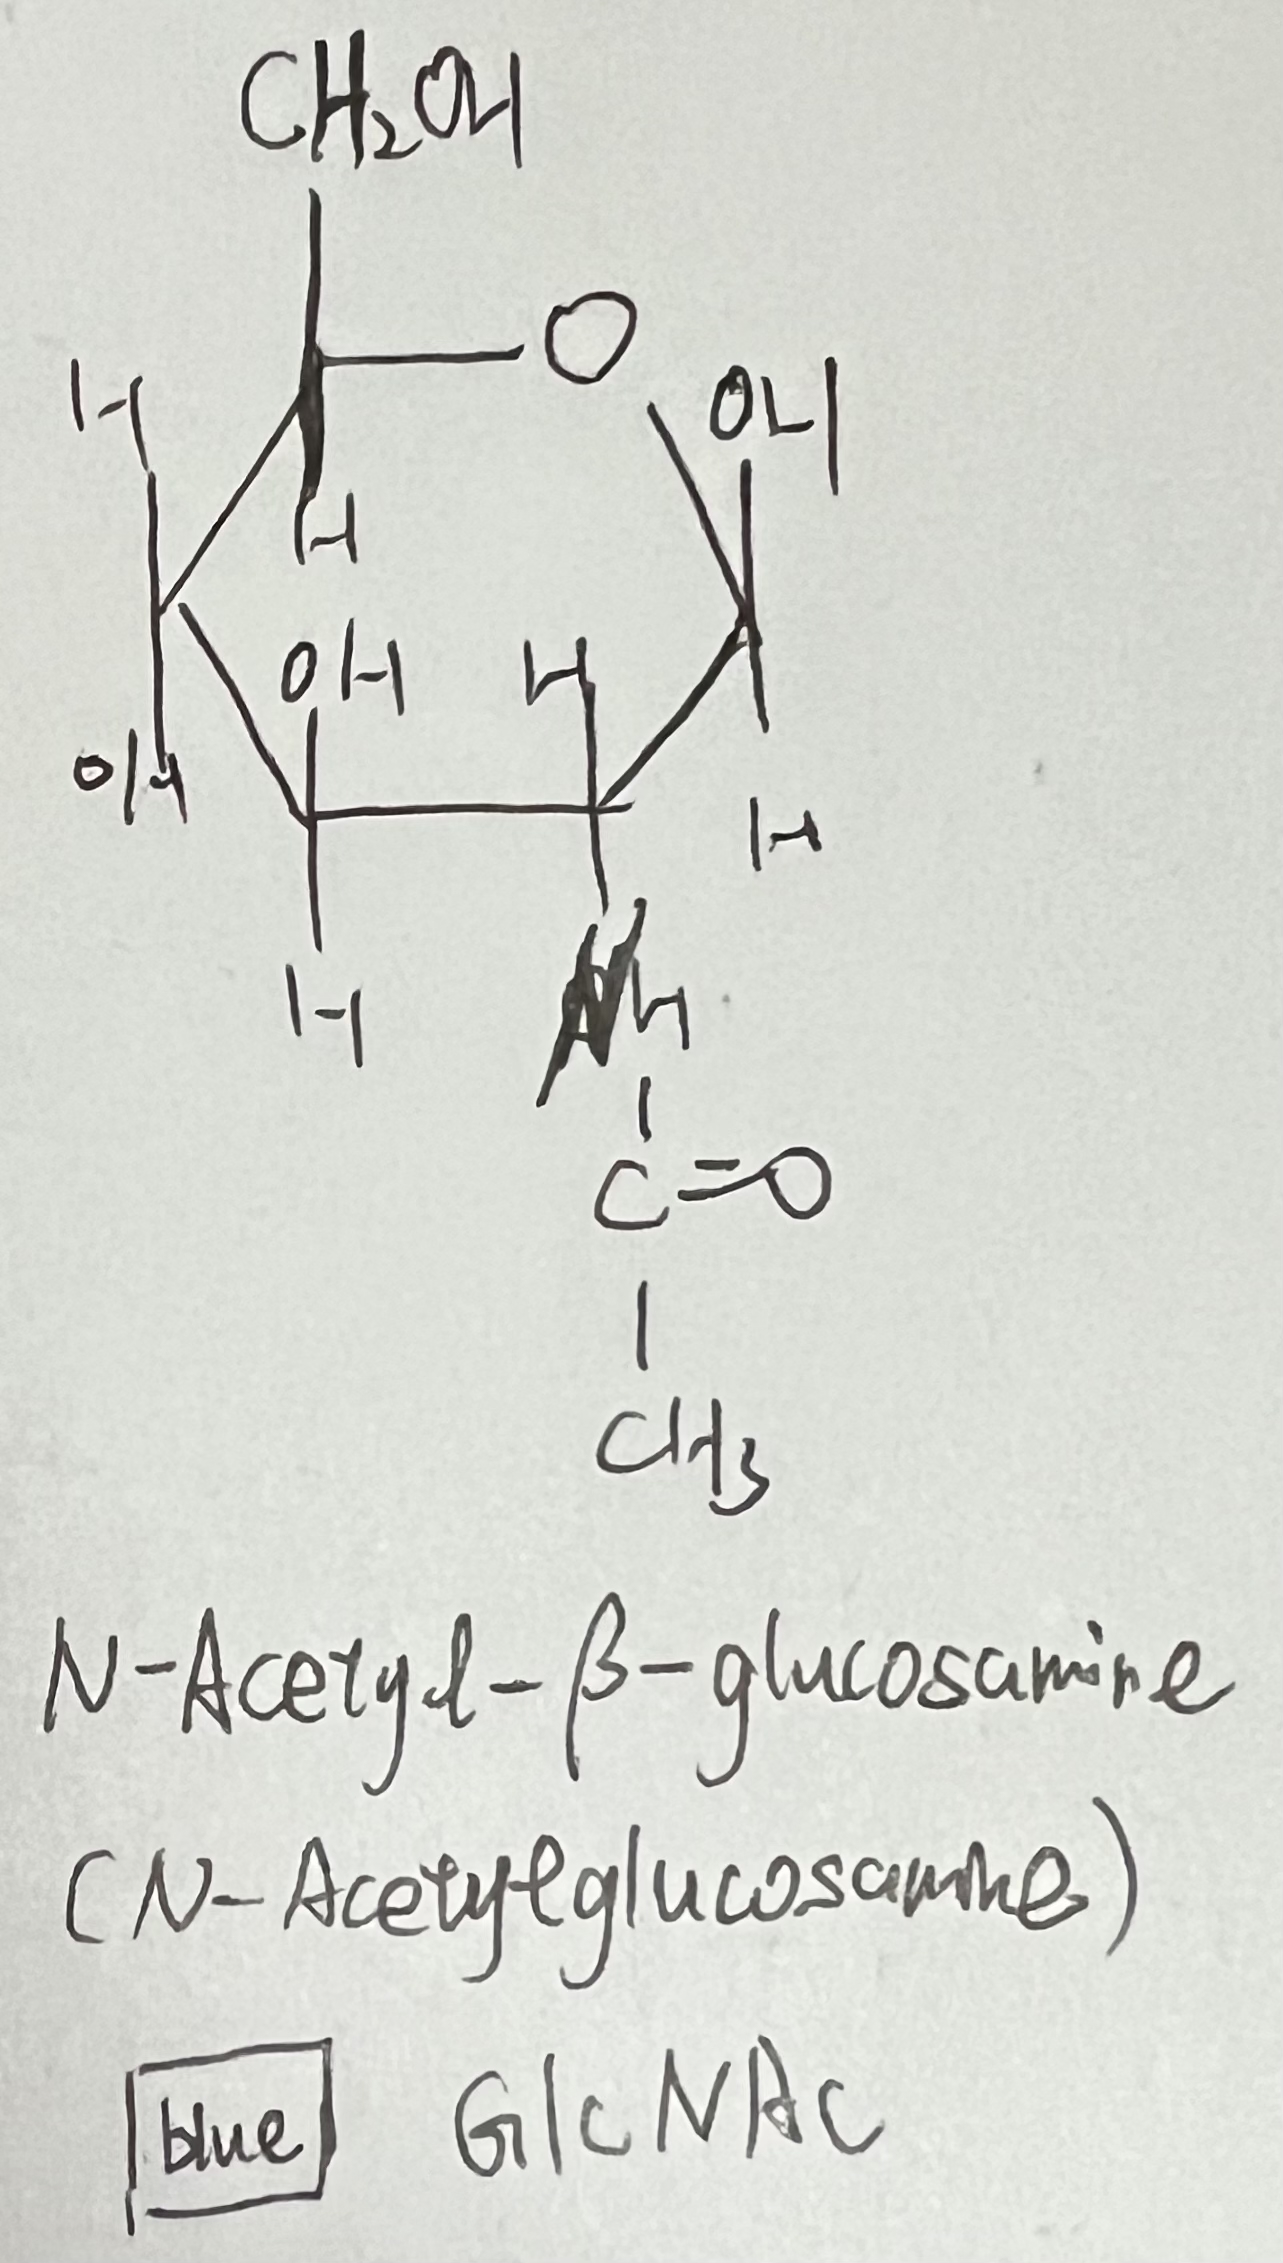 CH₂OH
O
H
OH
H
OH
H
OH
H
H
NH
C=O
CH₃
N-Acetyl-β-glucosamine
(N-Acetylglucosamine)
blue GlcNAc